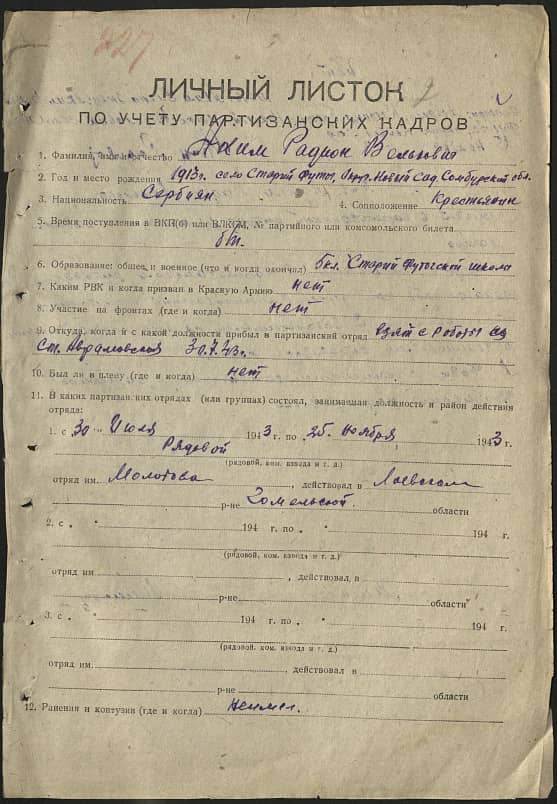 227
ЛИЧНЫЙ ЛИСТОК
ПО УЧЕТУ ПАРТИЗАНСКИХ КАДРОВ
1. Фамилия, имя и отчество Аким Радион Велькович
2. Год и место рождения 1913г. село Старый Футы, Окр. Новый Сад, Сомбурской обл.
3. Национальность Сербиян 4. Соцположение Крестьянин
5. Время поступления в ВКП(б) или ВЛКСМ, № партийного или комсомольского билета
б/п.
6. Образование: общее и военное (что и когда окончил) 5кл. Старый Футогской школы
7. Каким РВК и когда призван в Красную Армию нет
8. Участие на фронтах (где и когда) нет
9. Откуда, когда и с какой должности прибыл в партизанский отряд Взят с работы
Ст. Аврамовская 30.7.43г.
10. Был ли в плену (где и когда) нет
11. В каких партизанских отрядах (или группах) состоял, занимаемая должность и район действия
отряда:
1. с 30 Июля 1943 г. по 25 ноября 1943 г.
Рядовой
(рядовой, ком. взвода и т. д.)
отряд им. Молотова, действовал в Лоевском
р-не Гомельской области
2. с „ " 194 г. по „ " 194 г.
(рядовой, ком. взвода и т. д.)
отряд им. , действовал в
р-не области
3. с „ " 194 г. по „ " 194 г.
(рядовой, ком. взвода и т. д.)
отряд им. действовал в
р-не области
12. Ранения и контузии (где и когда) Неимел.